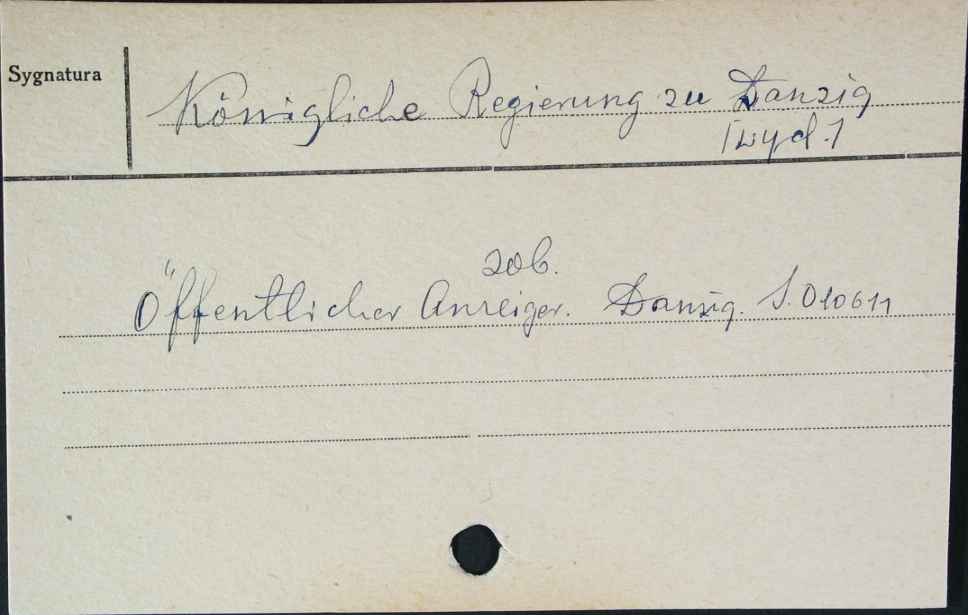 Sygnatura
Königliche Regierung zu Danzig
[wyd.]
zob.
Öffentlicher Anzeiger. Danzig. S. 010611